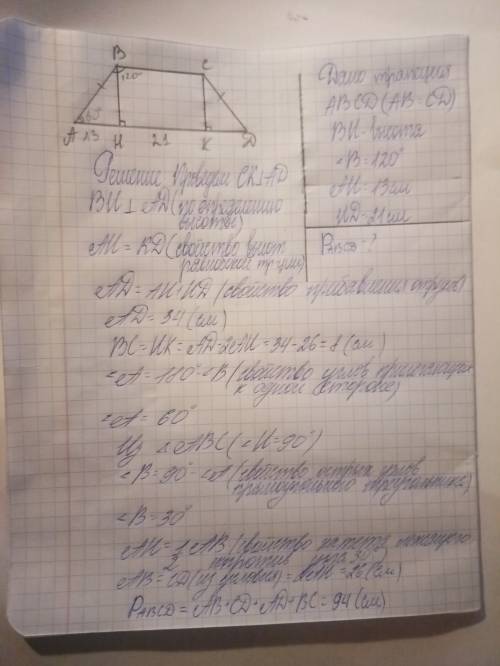 B
C
120°
60°
A
13
H
21
K
D
Дано трапеция
ABCD (AB=CD)
BH-высота
∠B=120°
AH=13см
HD=21см
PABCD-?
Решение: Проведем CK⊥AD
BH⊥AD (по определению
высоты)
AH=KD (свойство высот
равнобокой трапеции)
AD=AH+HD (свойство прибавления отрезков)
AD=34 (см)
BC=HK=AD-2AH=34-26=8 (см)
∠A=180°-∠B (свойство углов прилежащих
к одной стороне)
∠A=60°
Из △ABC (∠H=90°)
∠B=90°-∠A (свойство острых углов
прямоугольного треугольника)
∠B=30°
AH=1/2 AB (свойство катета, лежащего
против угла 30°)
AB=CD (из условия)=2AH=26 (см)
PABCD=AB+CD+AD+BC=94 (см)